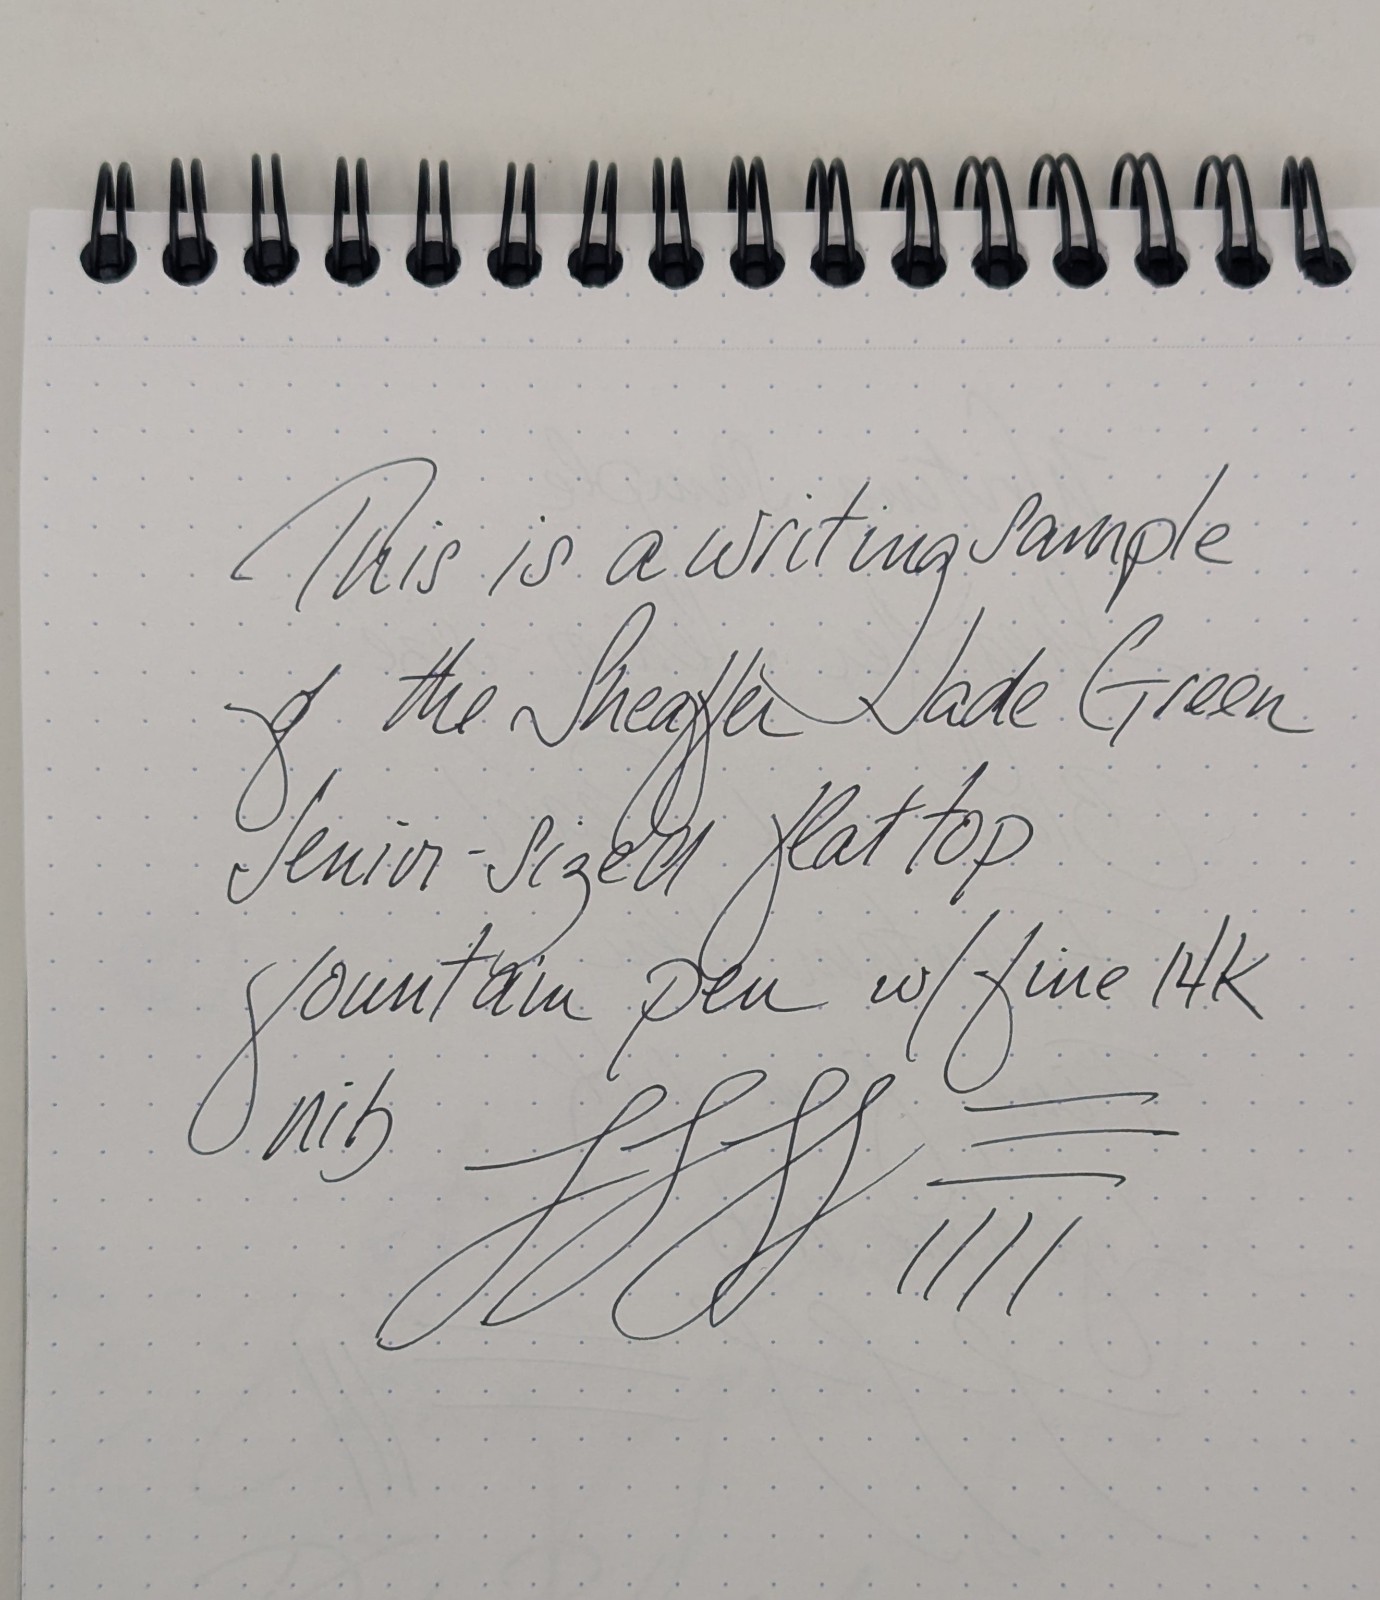 This is a writing sample
of the Sheaffer Jade Green
Senior-sized flat top
fountain pen w/ fine 14K
nib